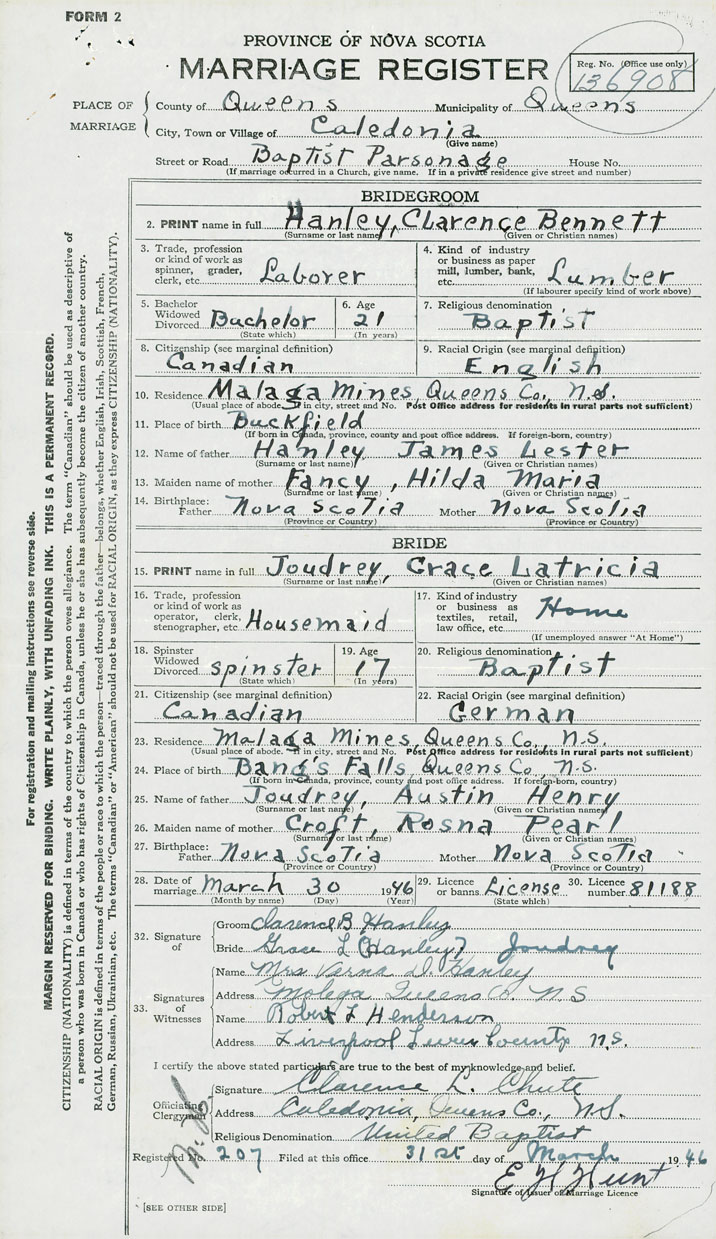 FORM 2
PROVINCE OF NOVA SCOTIA
MARRIAGE REGISTER
Reg. No. (Office use only)
136908
PLACE OF MARRIAGE
County of Queens Municipality of Queens
City, Town or Village of Caledonia
(Give name)
Street or Road Baptist Parsonage House No.
(If marriage occurred in a Church, give name. If in a private residence give street and number)
BRIDEGROOM
2. PRINT name in full Hanley, Clarence Bennett
(Surname or last name) (Given or Christian names)
3. Trade, profession or kind of work as spinner, grader, clerk, etc. Laborer
4. Kind of industry or business as paper mill, lumber, bank, etc. Lumber
(If labourer specify kind of work above)
5. Bachelor Widowed Divorced Bachelor
(State which)
6. Age 21
(In years)
7. Religious denomination Baptist
8. Citizenship (see marginal definition) Canadian
9. Racial Origin (see marginal definition) English
10. Residence Malaga Mines, Queens Co., N.S.
(Usual place of abode. If in city, street and No. Post Office address for residents in rural parts not sufficient)
11. Place of birth Buckfield
(If born in Canada, province, county and post office address. If foreign-born, country)
12. Name of father Hanley James Lester
(Surname or last name) (Given or Christian names)
13. Maiden name of mother Fancy, Hilda Maria
(Surname or last name) (Given or Christian names)
14. Birthplace: Father Nova Scotia Mother Nova Scotia
(Province or Country) (Province or Country)
BRIDE
15. PRINT name in full Joudrey, Grace Latricia
(Surname or last name) (Given or Christian names)
16. Trade, profession or kind of work as operator, clerk, stenographer, etc. Housemaid
17. Kind of industry or business as textiles, retail, law office, etc. Home
(If unemployed answer "At Home")
18. Spinster Widowed Divorced spinster
(State which)
19. Age 17
(In years)
20. Religious denomination Baptist
21. Citizenship (see marginal definition) Canadian
22. Racial Origin (see marginal definition) German
23. Residence Malaga Mines, Queens Co., N.S.
(Usual place of abode. If in city, street and No. Post Office address for residents in rural parts not sufficient)
24. Place of birth Bang's Falls, Queens Co., N.S.
(If born in Canada, province, county and post office address. If foreign-born, country)
25. Name of father Joudrey, Austin Henry
(Surname or last name) (Given or Christian names)
26. Maiden name of mother Croft, Rosna Pearl
(Surname or last name) (Given or Christian names)
27. Birthplace: Father Nova Scotia Mother Nova Scotia
(Province or Country) (Province or Country)
28. Date of marriage March 30 1946
(Month by name) (Day) (Year)
29. Licence or banns License
(State which)
30. Licence number 81188
32. Signature of
Groom Clarence B Hanley
Bride Grace L (Hanley) Joudrey
33. Signatures of Witnesses
Name Mrs Verna D. Hanley
Address Molega Queens Co. N S
Name Robert L Henderson
Address Liverpool Queens County N.S.
I certify the above stated particulars are true to the best of my knowledge and belief.
Officiating Clergyman
Signature Clarence L. Chute
Address Caledonia, Queens Co., N.S.
Religious Denomination United Baptist
Registered No. 207 Filed at this office 31st day of March 1946
E H Hunt
Signature of Issuer of Marriage Licence
[SEE OTHER SIDE]
For registration and mailing instructions see reverse side.
MARGIN RESERVED FOR BINDING. WRITE PLAINLY, WITH UNFADING INK. THIS IS A PERMANENT RECORD.
CITIZENSHIP (NATIONALITY) is defined in terms of the country to which the person owes allegiance. The term "Canadian" should be used as descriptive of
a person who was born in Canada or who has rights of Citizenship in Canada, unless he or she has subsequently become the citizen of another country.
RACIAL ORIGIN is defined in terms of the people or race to which the person—traced through the father—belongs, whether English, Irish, Scottish, French,
German, Russian, Ukrainian, etc. The terms "Canadian" or "American" should not be used for RACIAL ORIGIN, as they express CITIZENSHIP (NATIONALITY).